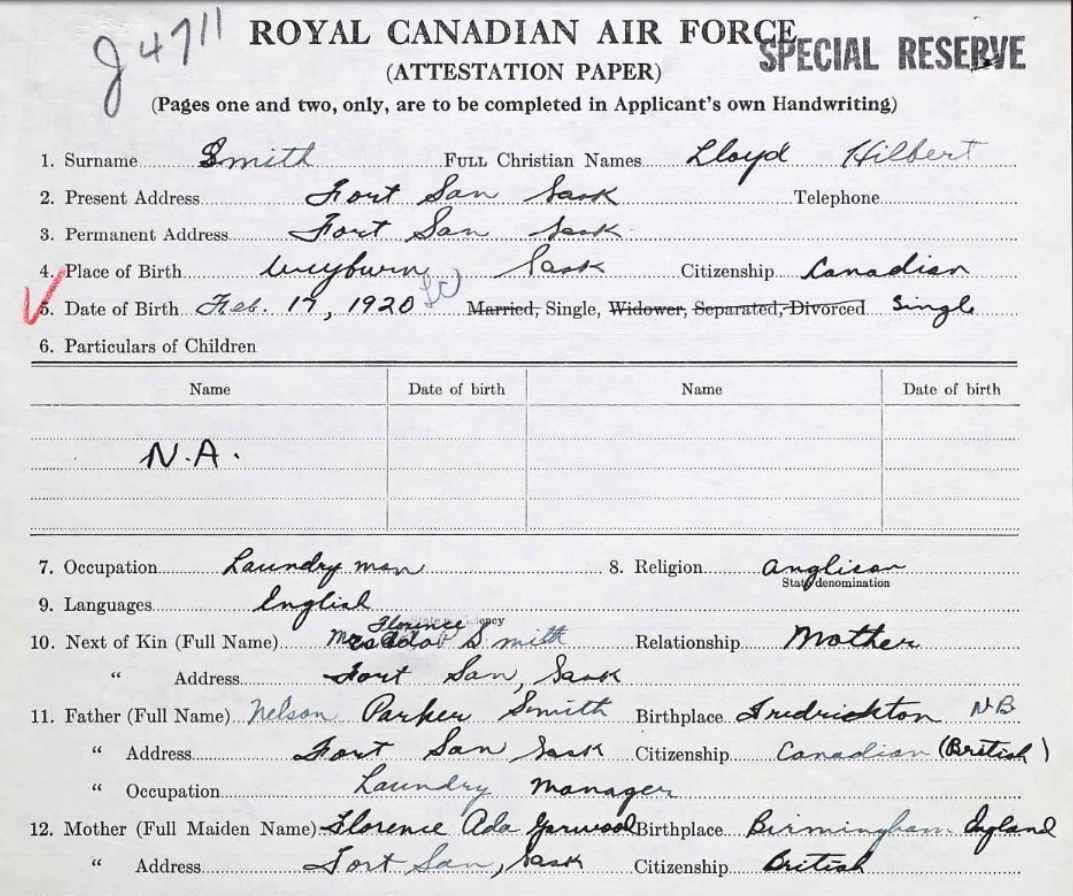 J4711
ROYAL CANADIAN AIR FORCE
SPECIAL RESERVE
(ATTESTATION PAPER)
(Pages one and two, only, are to be completed in Applicant's own Handwriting)
1. Surname Smith FULL Christian Names Lloyd Hilbert
2. Present Address Fort San Sask Telephone
3. Permanent Address Fort San Sask
4. Place of Birth Weyburn Sask Citizenship Canadian
5. Date of Birth Feb. 17, 1920 Married, Single, Widower, Separated, Divorced Single
6. Particulars of Children
Name Date of birth Name Date of birth
N.A.
7. Occupation Laundry man 8. Religion Anglican
State denomination
9. Languages English
10. Next of Kin (Full Name) Mrs Florence Smith Relationship Mother
" Address Fort San, Sask
11. Father (Full Name) Nelson Parker Smith Birthplace Fredrickton NB
" Address Fort San Sask Citizenship Canadian (British)
" Occupation Laundry Manager
12. Mother (Full Maiden Name) Florence Ada Yarwood Birthplace Birmingham England
" Address Fort San, Sask Citizenship British